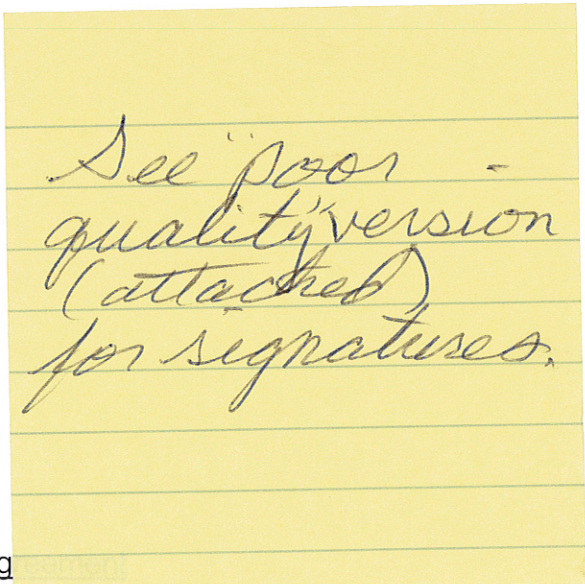 See "poor -
quality" version
(attached)
for signatures.
g